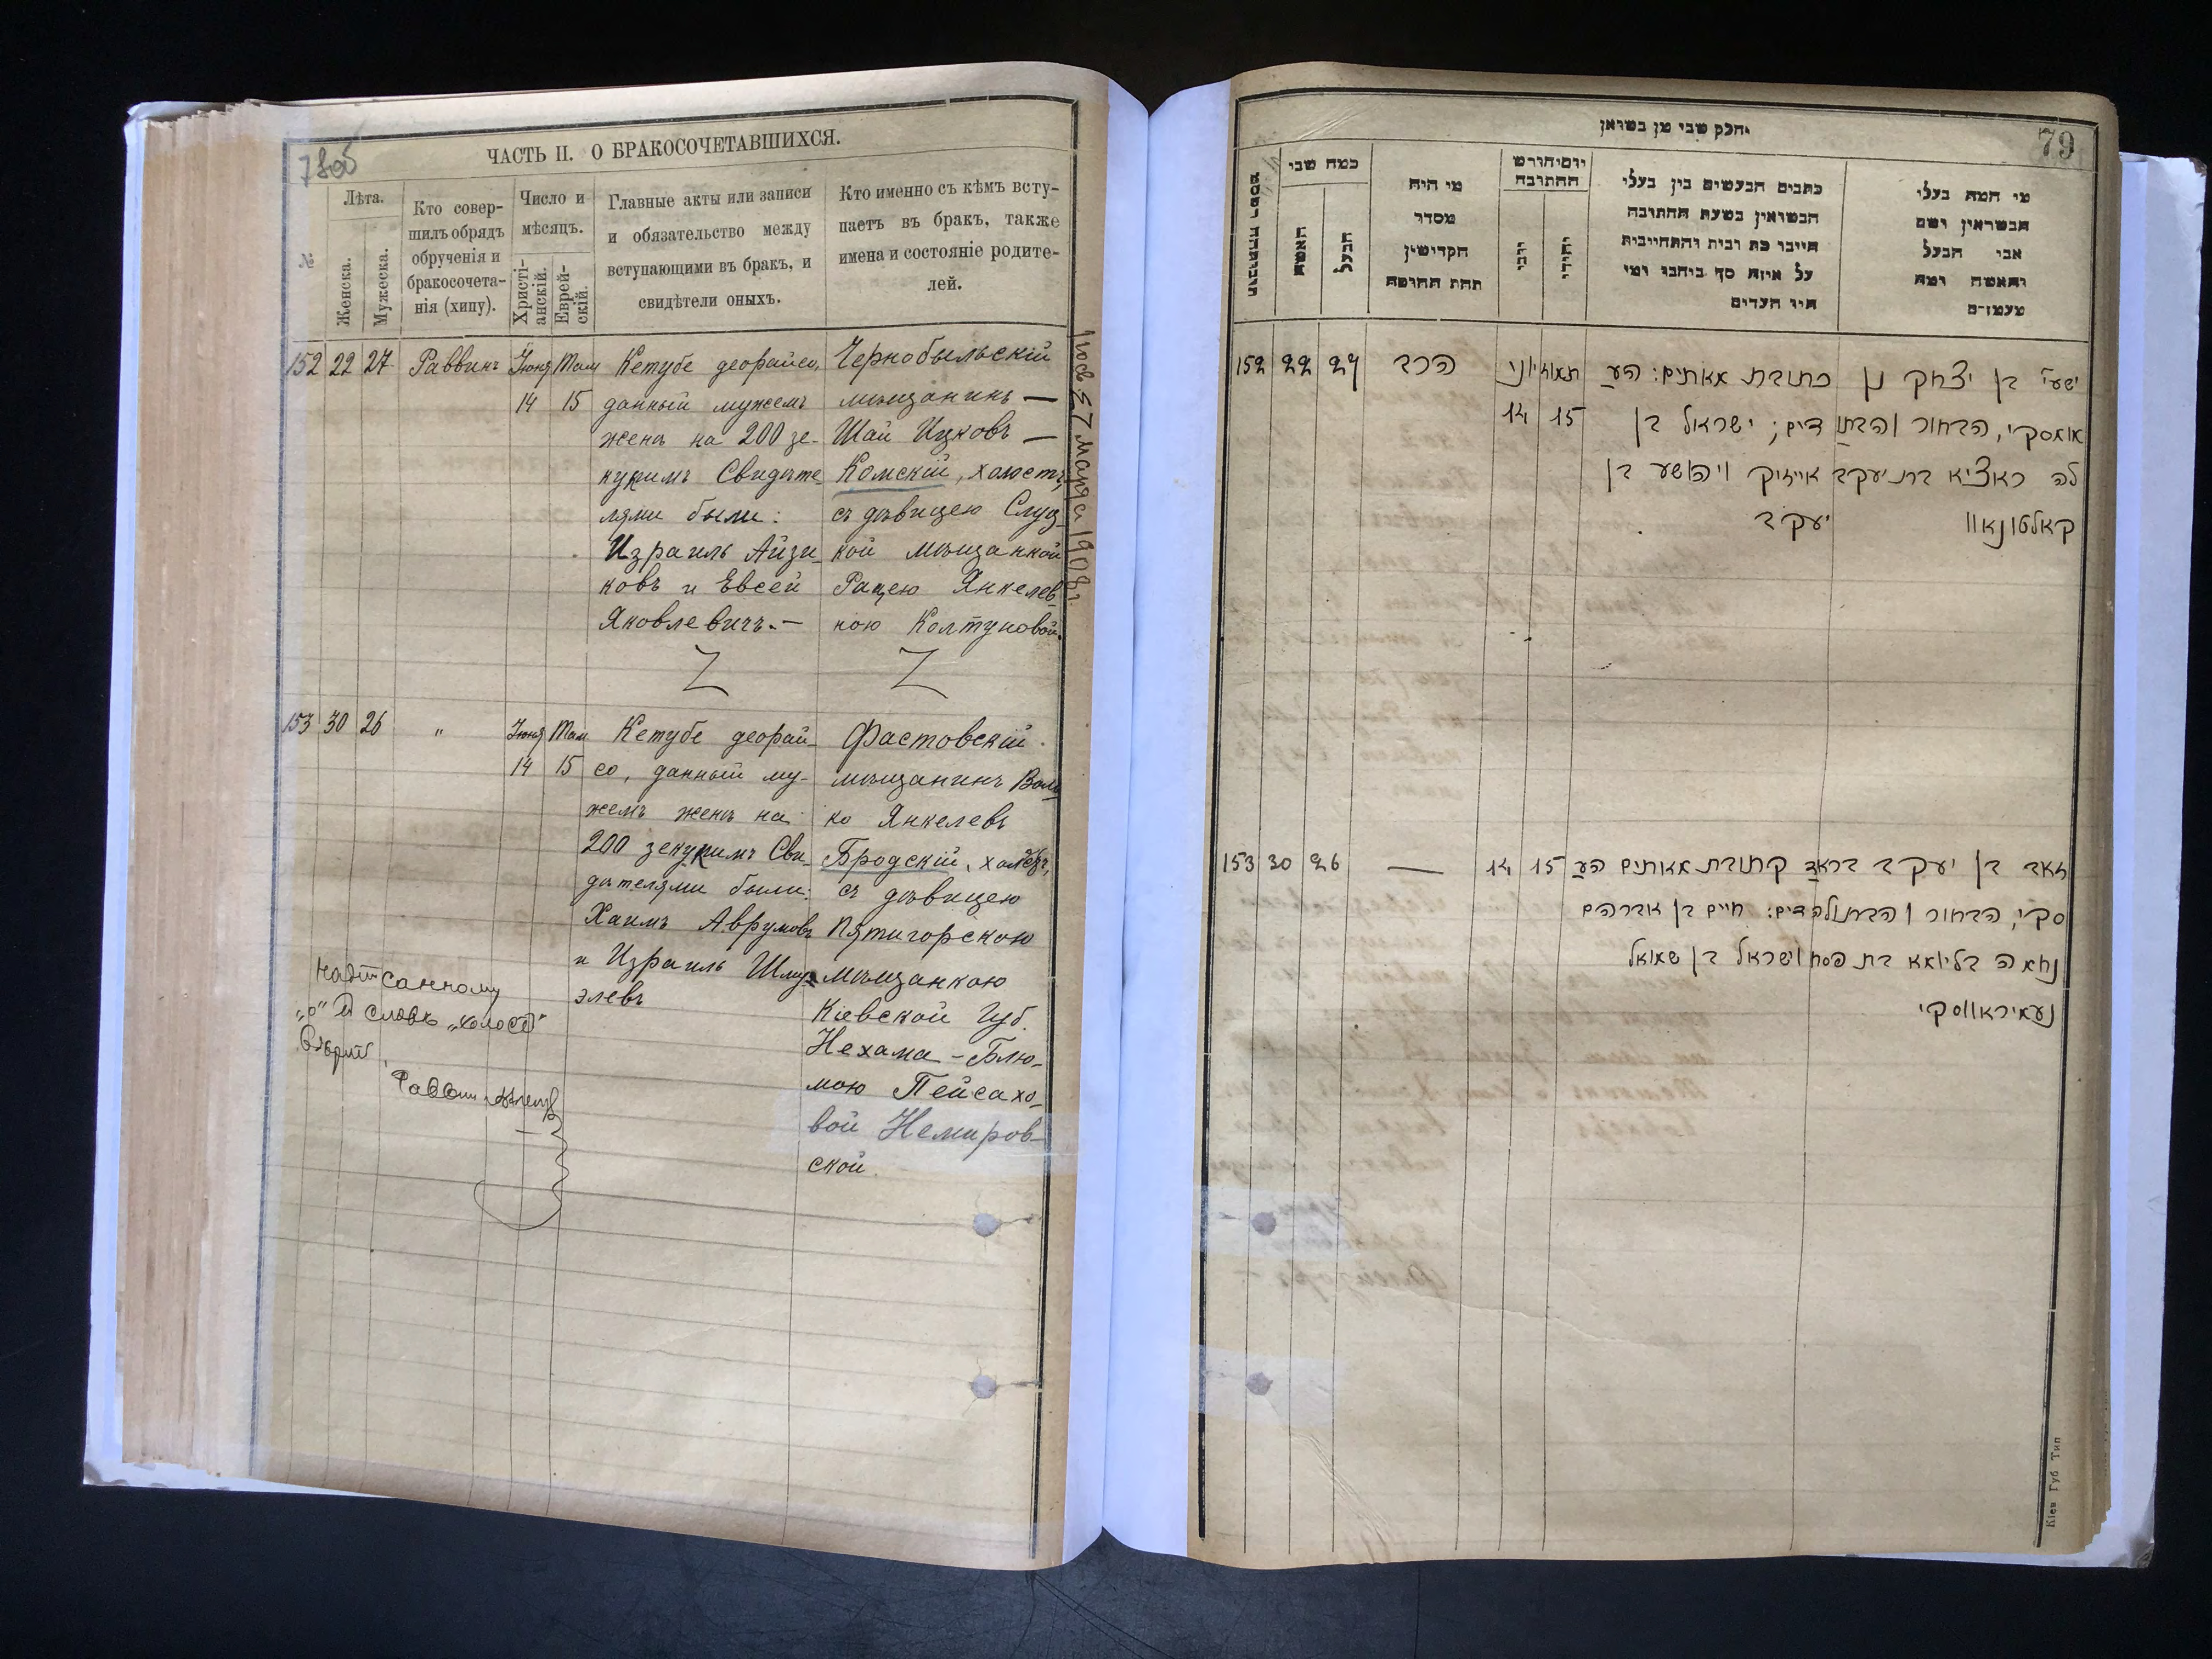 ЧАСТЬ II. О БРАКОСОЧЕТАВШИХСЯ.
№
Лѣта.
Женска.
Мужеска.
Кто совер-
шилъ обрядъ
обрученія и
бракосочета-
нія (хипу).
Число и
мѣсяцъ.
Христі-
анскій.
Еврей-
скій.
Главные акты или записи
и обязательство между
вступающими въ бракъ, и
свидѣтели оныхъ.
Кто именно съ кѣмъ всту-
паетъ въ бракъ, также
имена и состояніе родите-
лей.
152 22 27 Раввинъ Іюня 14 Там 15
Кетубе деорайсо,
данный мужемъ
женѣ на 200 зе-
кукимъ Свидѣте-
лями были:
Израиль Айзи-
ковъ и Евсей
Яковлевичъ.—
Чернобыльскій
мѣщанинъ —
Шая Ицковъ —
Комскій, холостъ,
съ дѣвицею Слуц-
кой мѣщанкой
Рацею Янкелев-
ною Колтуновой.
марта 1908 г
153 30 26 " Іюня 14 Там 15
Кетубе деорай-
со, данный му-
жемъ женѣ на
200 зекукимъ Сви-
дѣтелями были:
Хаимъ Аврумовъ
и Израиль Шму-
элевъ
Фастовскій
мѣщанинъ Воль-
ко Янкелевъ
Бродскій, холостъ,
съ дѣвицею
Пятигорскою
мѣщанкою
Кіевской Губ.
Нехама-Блю-
мою Пейсахо-
вой Немиров-
ской.
надписанному
"о" въ словѣ "холостъ"
вѣрить
Раввинъ
79
חלק שני מן נשואין
כמה שני
האשה
הבעל
מי היה
מסדר
הקדושין
תחת החופה
יום וחודש
החתונה
יוני
יהודי
כתבים הנעשים בין בעלי
הנשואין בשעת החתונה
היינו כת ובית והתחייבות
על איזה סך ביחנו ומי
היו העדים
מי המה בעלי
הנשואין ושם
אבי הבעל
והאשה ומה
מעמדם
152 22 27 הרב יוני 14 תאוז 15
כתובת מאתים: הע
דים; ישראל בן
אייזיק ויהושע בן
יעקב
ישעי' בן יצחק
קאמסקי, הבחור והבתו
לה ראציא בת יעקב
קאלטונאוו
153 30 26 — 14 15
כתובת מאתים הע
דים: חיים בן אברהם
וישראל בן שמואל
זאב בן יעקב בראד
סקי, הבחור והבתולה
נחמה בליומא בת פסח
נעמיראווסקי
Кіев Губ Тип